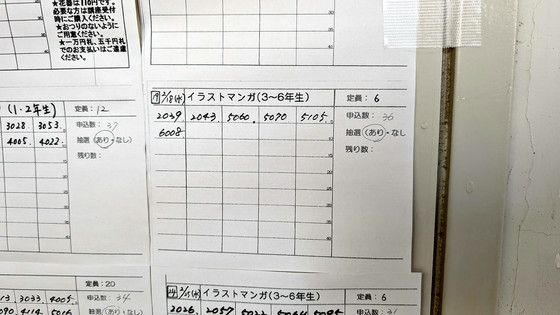 ★花器は110円です。
必要な方は講座受付
時にご購入ください。
★おつりのないように
ご用意ください。
★一万円札、五千円札
でのお支払いはご遠慮
ください。
(1・2年生)
定員: 12
3028 3053
申込数: 37
4005 4022
抽選(あり・なし
残り数:
イラストマンガ(3~6年生)
定員: 6
2039 2043 5060 5070 5105
申込数: 36
6008
抽選(あり・なし
残り数:
定員: 20
13 3033 4005
申込数: 34
090 4114 5016
抽選(あり・なし
24
イラストマンガ(3~6年生)
定員: 6
2026 2057
申込数: 31